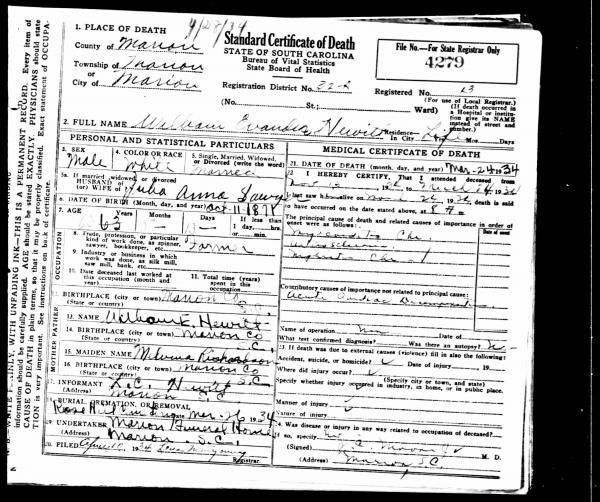 4/28/34
1. PLACE OF DEATH
County of Marion
Township of Marion
or
City of Marion
Standard Certificate of Death
STATE OF SOUTH CAROLINA
Bureau of Vital Statistics
State Board of Health
File No.—For State Registrar Only
4279
Registration District No. 32-2
Registered No. 13
(For use of Local Registrar.)
(No. St.; Ward)
(If death occurred in a Hospital or institution give its NAME instead of street and number.)
2. FULL NAME William Evander Hewitt
Residence— In City Life Mos. Days
PERSONAL AND STATISTICAL PARTICULARS
3. SEX
Male
4. COLOR OR RACE
White
5. Single, Married, Widowed, or Divorced
Married
5a. If married, widowed, or divorced
HUSBAND of
(or) WIFE of Julia Anna
6. DATE OF BIRTH (Month, day, and year) Oct-11-1871
7. AGE Years Months Days If less than 1 day
63
8. Trade, profession, or particular kind of work done, as spinner, sawyer, bookkeeper, etc.
Farmer
9. Industry or business in which work was done, as silk mill, saw mill, bank, etc.
10. Date deceased last worked at this occupation (month and year)
11. Total time (years) spent in this occupation
OCCUPATION
12. BIRTHPLACE (city or town) Marion Co
(State or country) S.C.
13. NAME William E. Hewitt
14. BIRTHPLACE (city or town) Marion Co
(State or country) S.C.
15. MAIDEN NAME Melvina Richardson
16. BIRTHPLACE (city or town) Marion Co
(State or country) S.C.
MOTHER FATHER
17. INFORMANT L.C. Hewitt
(Address) Marion S.C.
18. BURIAL, CREMATION, OR REMOVAL
Rose Hill Mar-26 1934
19. UNDERTAKER Marion Funeral Home
(Address) Marion S.C.
20. FILED 1934 Montgomery
Registrar.
MEDICAL CERTIFICATE OF DEATH
21. DATE OF DEATH (month, day, and year) Mar-24 1934
22. I HEREBY CERTIFY, That I attended deceased from
I last saw him alive on death is said
to have occurred on the date stated above, at
The principal cause of death and related causes of importance in order of onset were as follows:
Date of onset
Myocarditis Chr.
Nephritis Chr
Contributory causes of importance not related to principal cause:
Acute Cardiac
Name of operation
What test confirmed diagnosis? Was there an autopsy? No
23. If death was due to external causes (violence) fill in also the following:
Accident, suicide, or homicide? Date of injury 19
Where did injury occur?
(Specify city or town, county, and State)
Specify whether injury occurred in industry, in home, or in public place
Manner of injury
Nature of injury
24. Was disease or injury in any way related to occupation of deceased?
If so, specify
M. D.
(Address) Marion, S.C.
N. B.—WRITE PLAINLY, WITH UNFADING INK—THIS IS A PERMANENT RECORD. Every item of
information should be carefully supplied. AGE should be stated EXACTLY. PHYSICIANS should state
CAUSE OF DEATH in plain terms, so that it may be properly classified. Exact statement of OCCUPA-
TION is very important. See instructions on back of certificate.